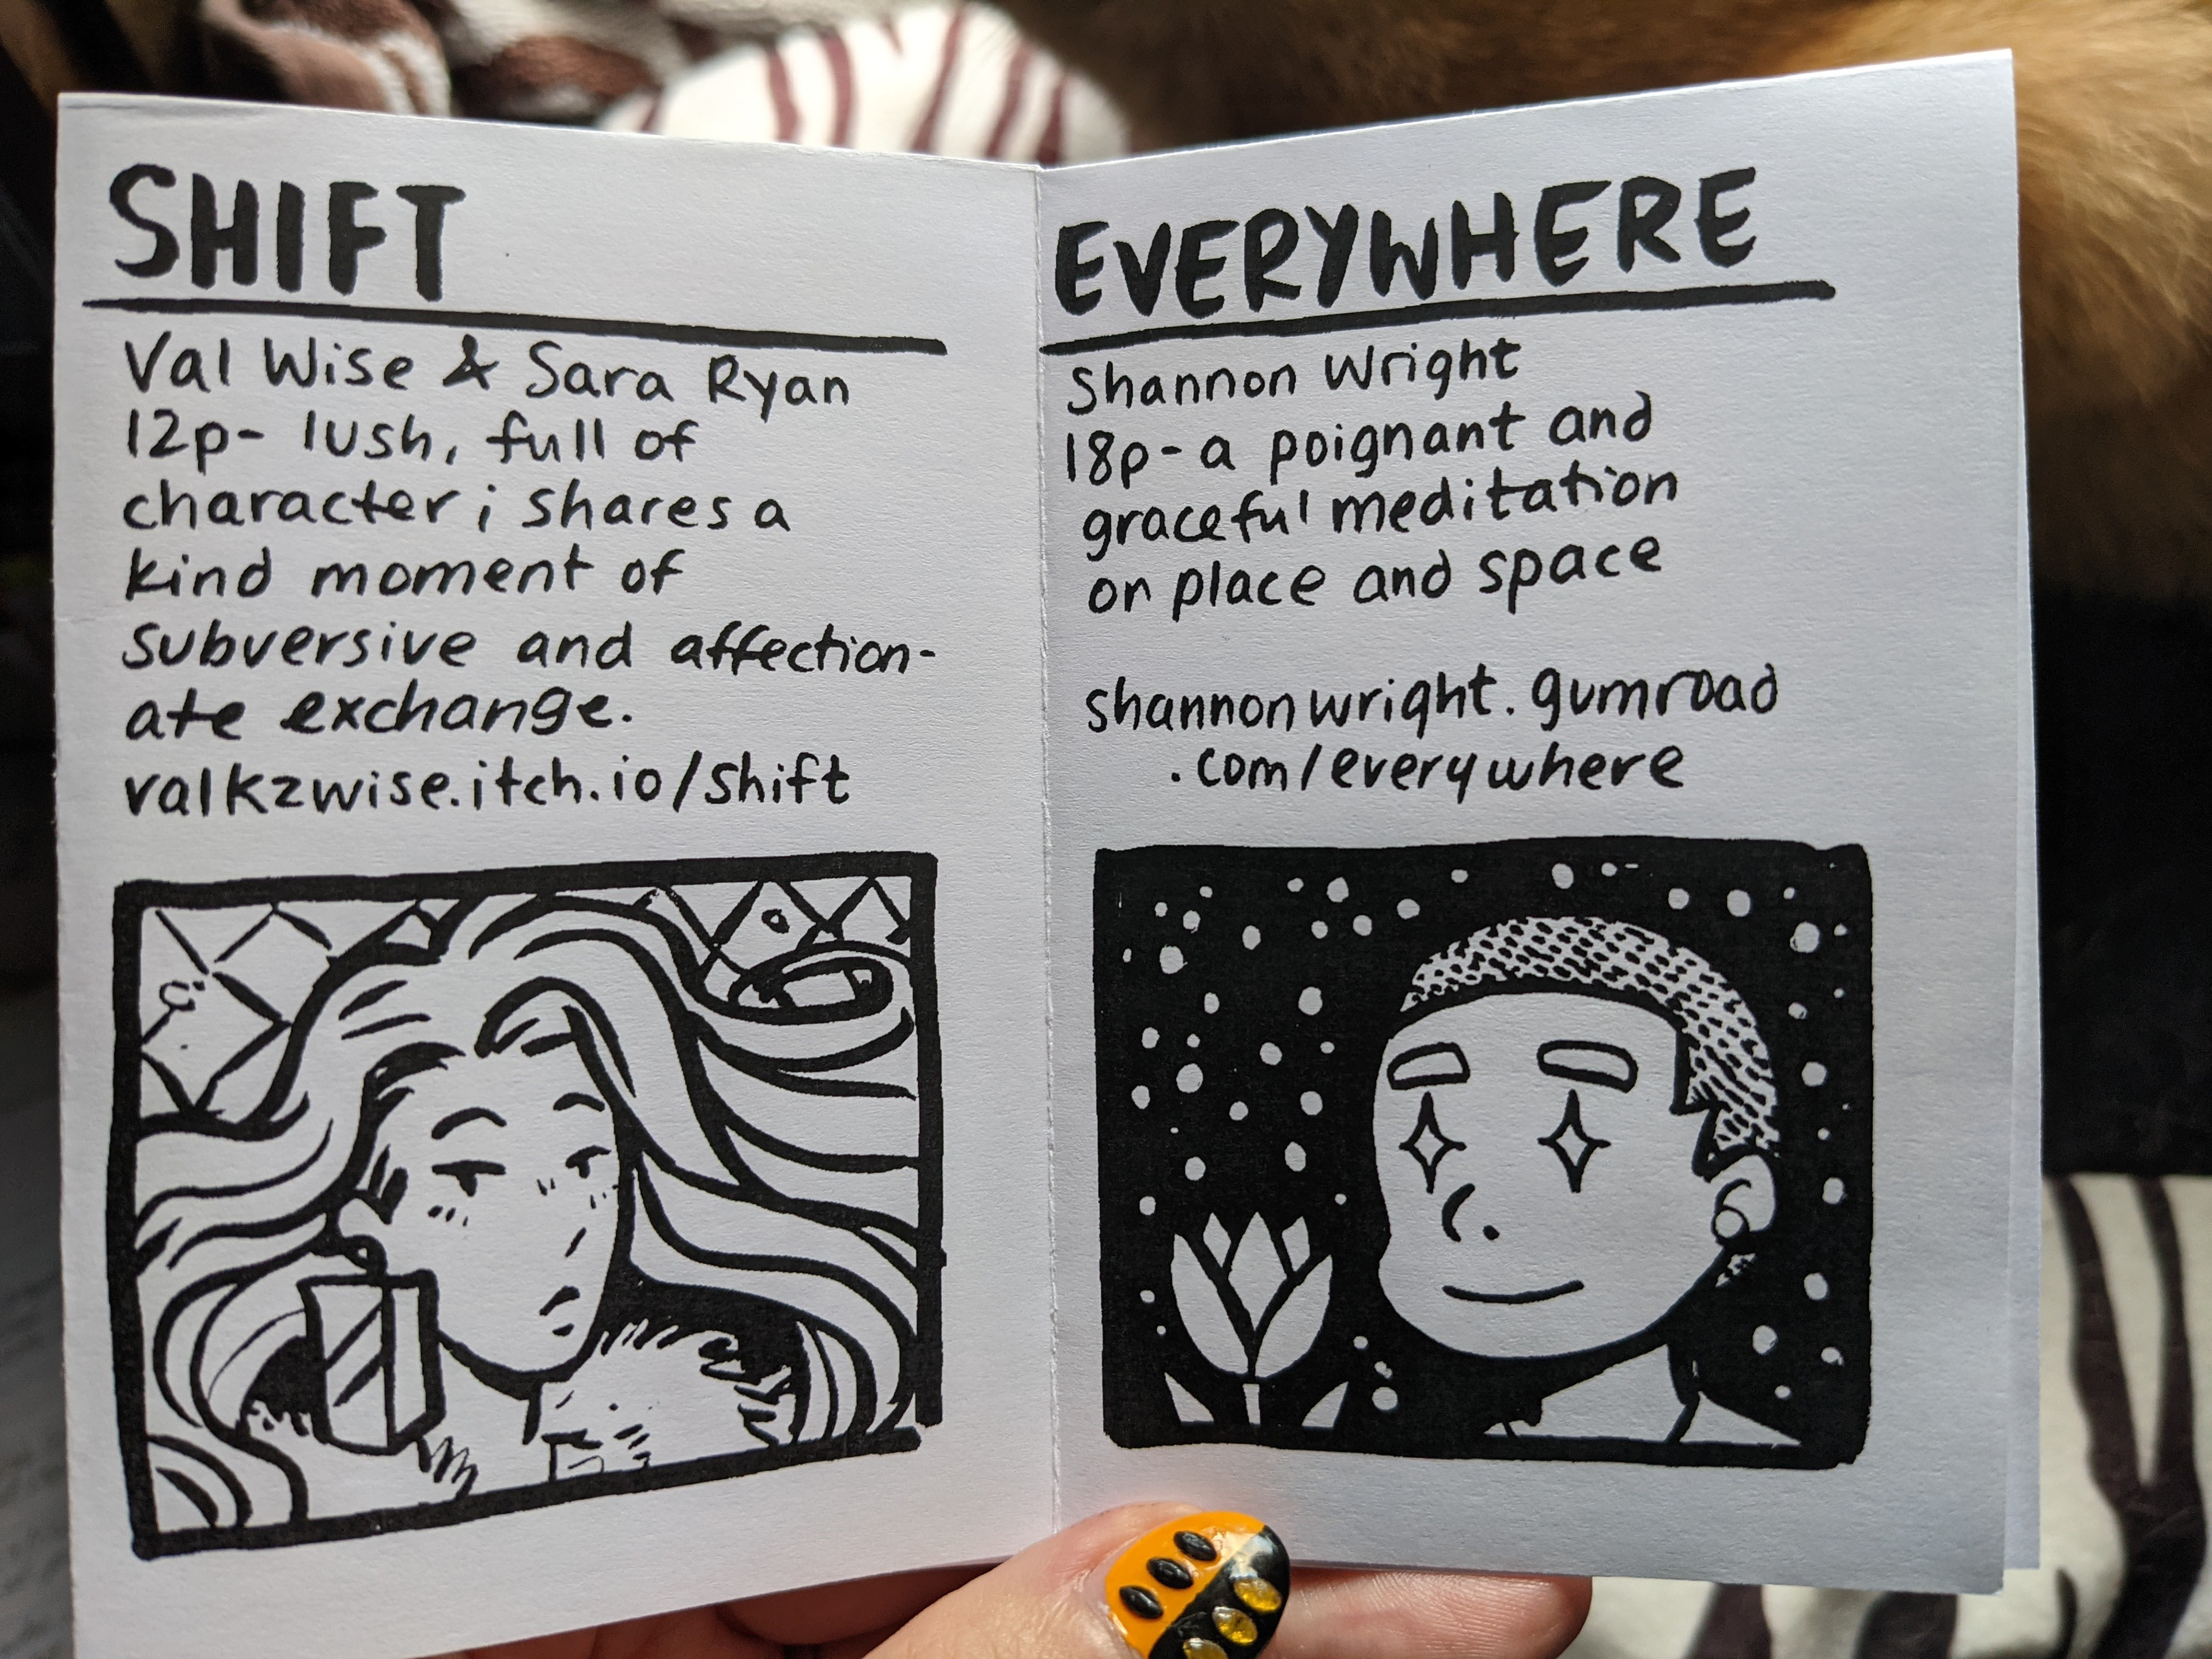 SHIFT
Val Wise & Sara Ryan
12p- lush, full of
character; shares a
kind moment of
subversive and affection-
ate exchange.
valkzwise.itch.io/shift
EVERYWHERE
Shannon Wright
18p- a poignant and
graceful meditation
on place and space
shannonwright.gumroad
.com/everywhere